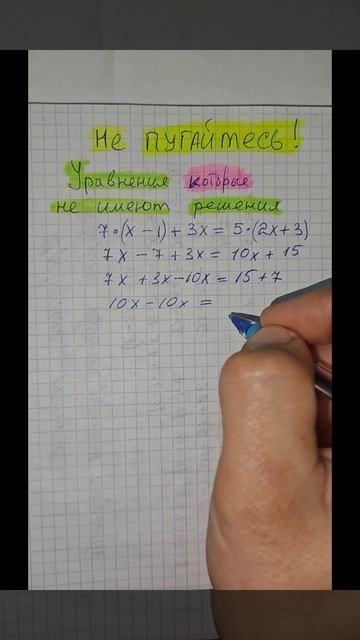 Не пугайтесь!
Уравнения которые
не имеют решения
7·(x-1)+3x=5·(2x+3)
7x-7+3x=10x+15
7x+3x-10x=15+7
10x-10x=